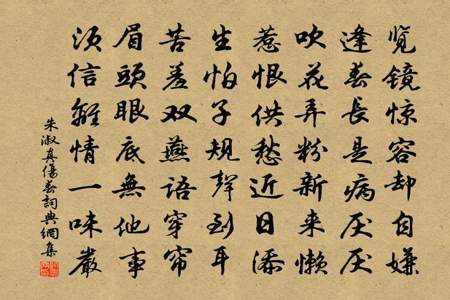 览镜惊容却自嫌
逢春長是病厌厌
吹花弄粉新来懒
惹恨供愁近日添
生怕子规聲到耳
苦羞双燕语穿帘
眉頭眼底無他事
须信離情一味嚴
朱淑真傷春詞典網集